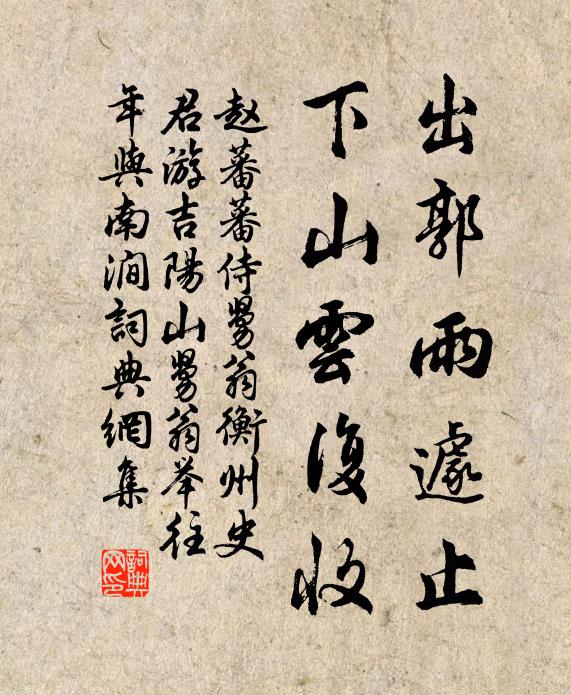 出郭雨遽止
下山雲復收
赵蕃蕃侍舅翁衡州史
君游吉陽山舅翁举往
年與南澗詞典網集
詞典網印